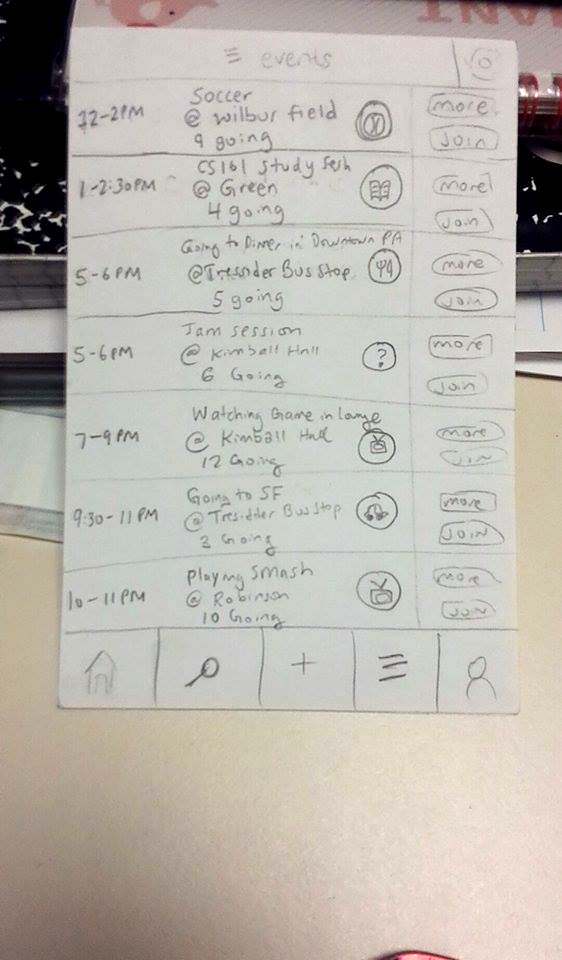 ANT
events
12-2PM
Soccer
@ Wilbur field
9 going
more
join
1-2:30PM
CS161 Study Sesh
@ Green
4 going
more
join
5-6PM
Going to Dinner in Downtown PA
@Tressider Bus Stop
5 going
more
join
5-6PM
Jam session
@ Kimball Hall
6 Going
?
more
join
7-9PM
Watching Game in Lounge
@ Kimball Hall
12 Going
more
JOIN
9:30-11PM
Going to SF
@ Tresidder Bus Stop
3 Going
more
JOIN
10-11PM
playing Smash
@ Robinson
10 Going
more
JOIN